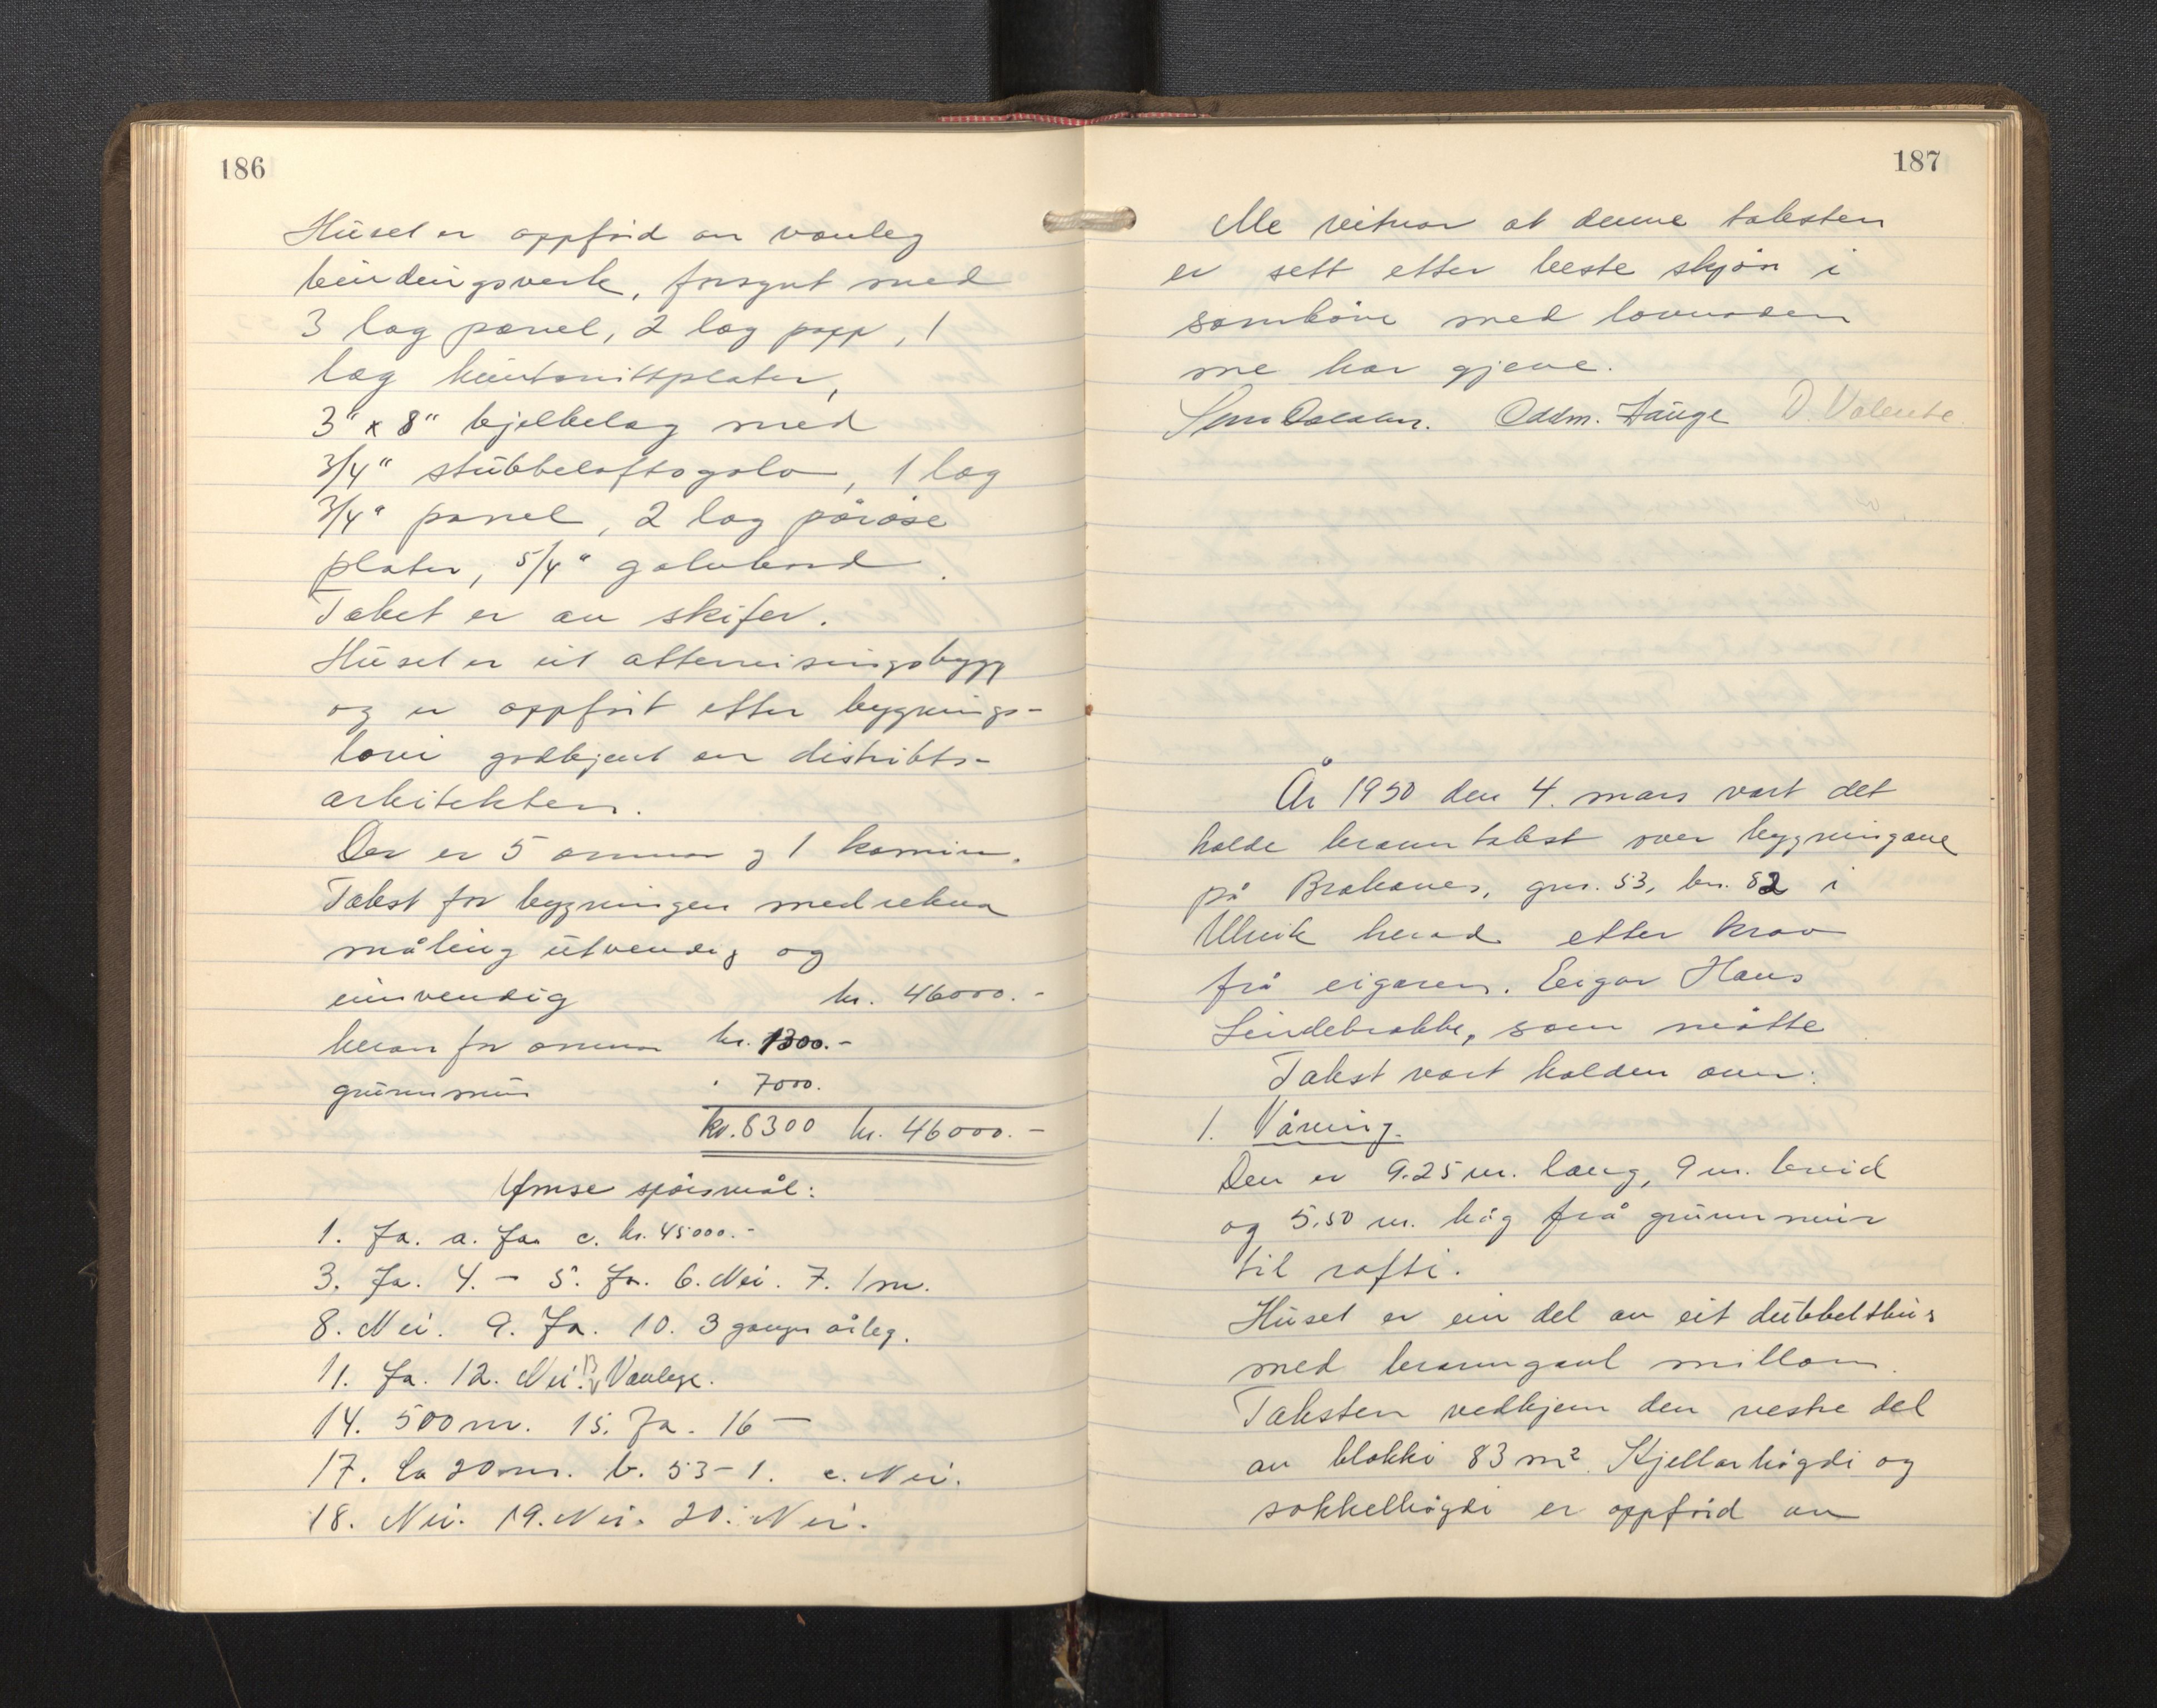 186
Huset er oppførd av vanleg
bindingsverk, forsynt med
3 lag panel, 2 lag papp, 1
lag huntonittplater,
3" x 8" bjelkelag med
3/4" stubbeloftsgolv, 1 lag
3/4" panel, 2 lag porøse
plater, 5/4" golvbord.
Taket er av skifer.
Huset er eit atterreisingsbygg
og er oppført etter bygnings-
lovi godkjent av distrikts-
arkitekten.
Der er 5 omnar og 1 kamin.
Takst for bygningen medrekna
måling utvendig og
innvendig kr. 46000.-
herav for omnar kr. 1300.-
grunnmur " 7000.
kr. 8300 kr. 46000.-
Ymse spörsmål:
1. Ja. a. Ja. c. kr. 45000.-
3. Ja. 4. - 5. Ja. 6. Nei. 7. 1 m.
8. Nei. 9. Ja. 10. 3 gonger årleg.
11. Ja. 12. Nei. 13 Vanlege.
14. 500 m. 15. Ja. 16 -
17. Ca 20 m. b. 53-1. c. Nei.
18. Nei. 19. Nei. 20. Nei.
187
Me vitnar at denne taksten
er sett etter beste skjøn i
samhøve med lovnaden
me har gjeve.
Oddm. Hauge
År 1950 den 4. mars vart det
halde branntakst over bygningane
på Brakanes, gnr. 53, bnr. 82 i
Ulvik herad etter krav
frå eigaren. Eigar Hans
Lindebrekke, som møtte
Takst vart halden over:
1. Våning.
Den er 9.25 m. lang, 9 m. breid
og 5.50 m. høg frå grunnmur
til rafti.
Huset er ein del av eit dubbelthus
med branngavl millom.
Taksten vedkjem den vestre del
av blokki 83 m². Kjellarhøgdi og
sokkelhøgdi er oppførd av